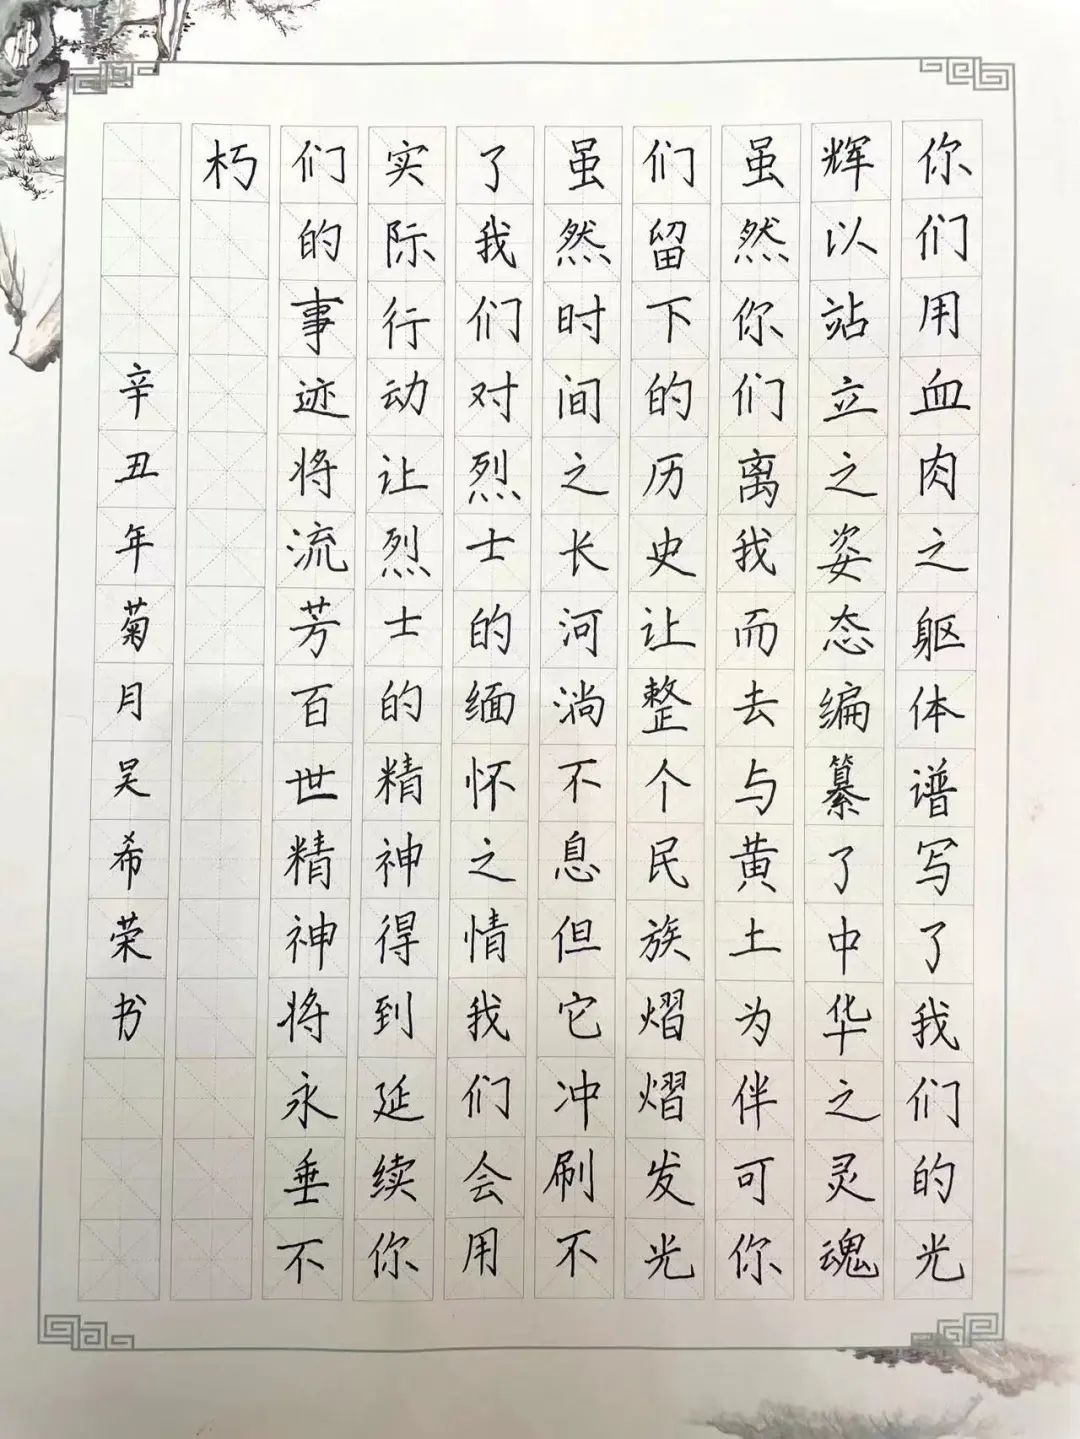 你们用血肉之躯体谱写了我们的光
辉以站立之姿态编纂了中华之灵魂
虽然你们离我而去与黄土为伴可你
们留下的历史让整个民族熠熠发光
虽然时间之长河淌不息但它冲刷不
了我们对烈士的缅怀之情我们会用
实际行动让烈士的精神得到延续你
们的事迹将流芳百世精神将永垂不
朽
辛丑年菊月吴希荣书